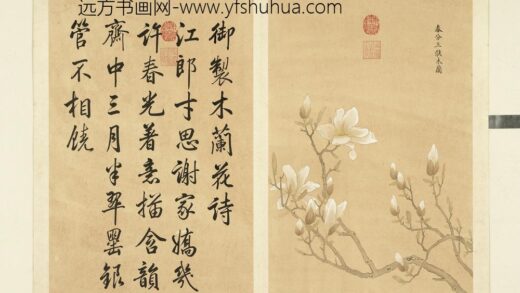 远方书画网-www.yfshuhua.com
御製木蘭花詩
江郎才思謝家嬌幾
許春光著意描含韻
齋中三月半翠罌銀
管不相饒
春分三候木蘭